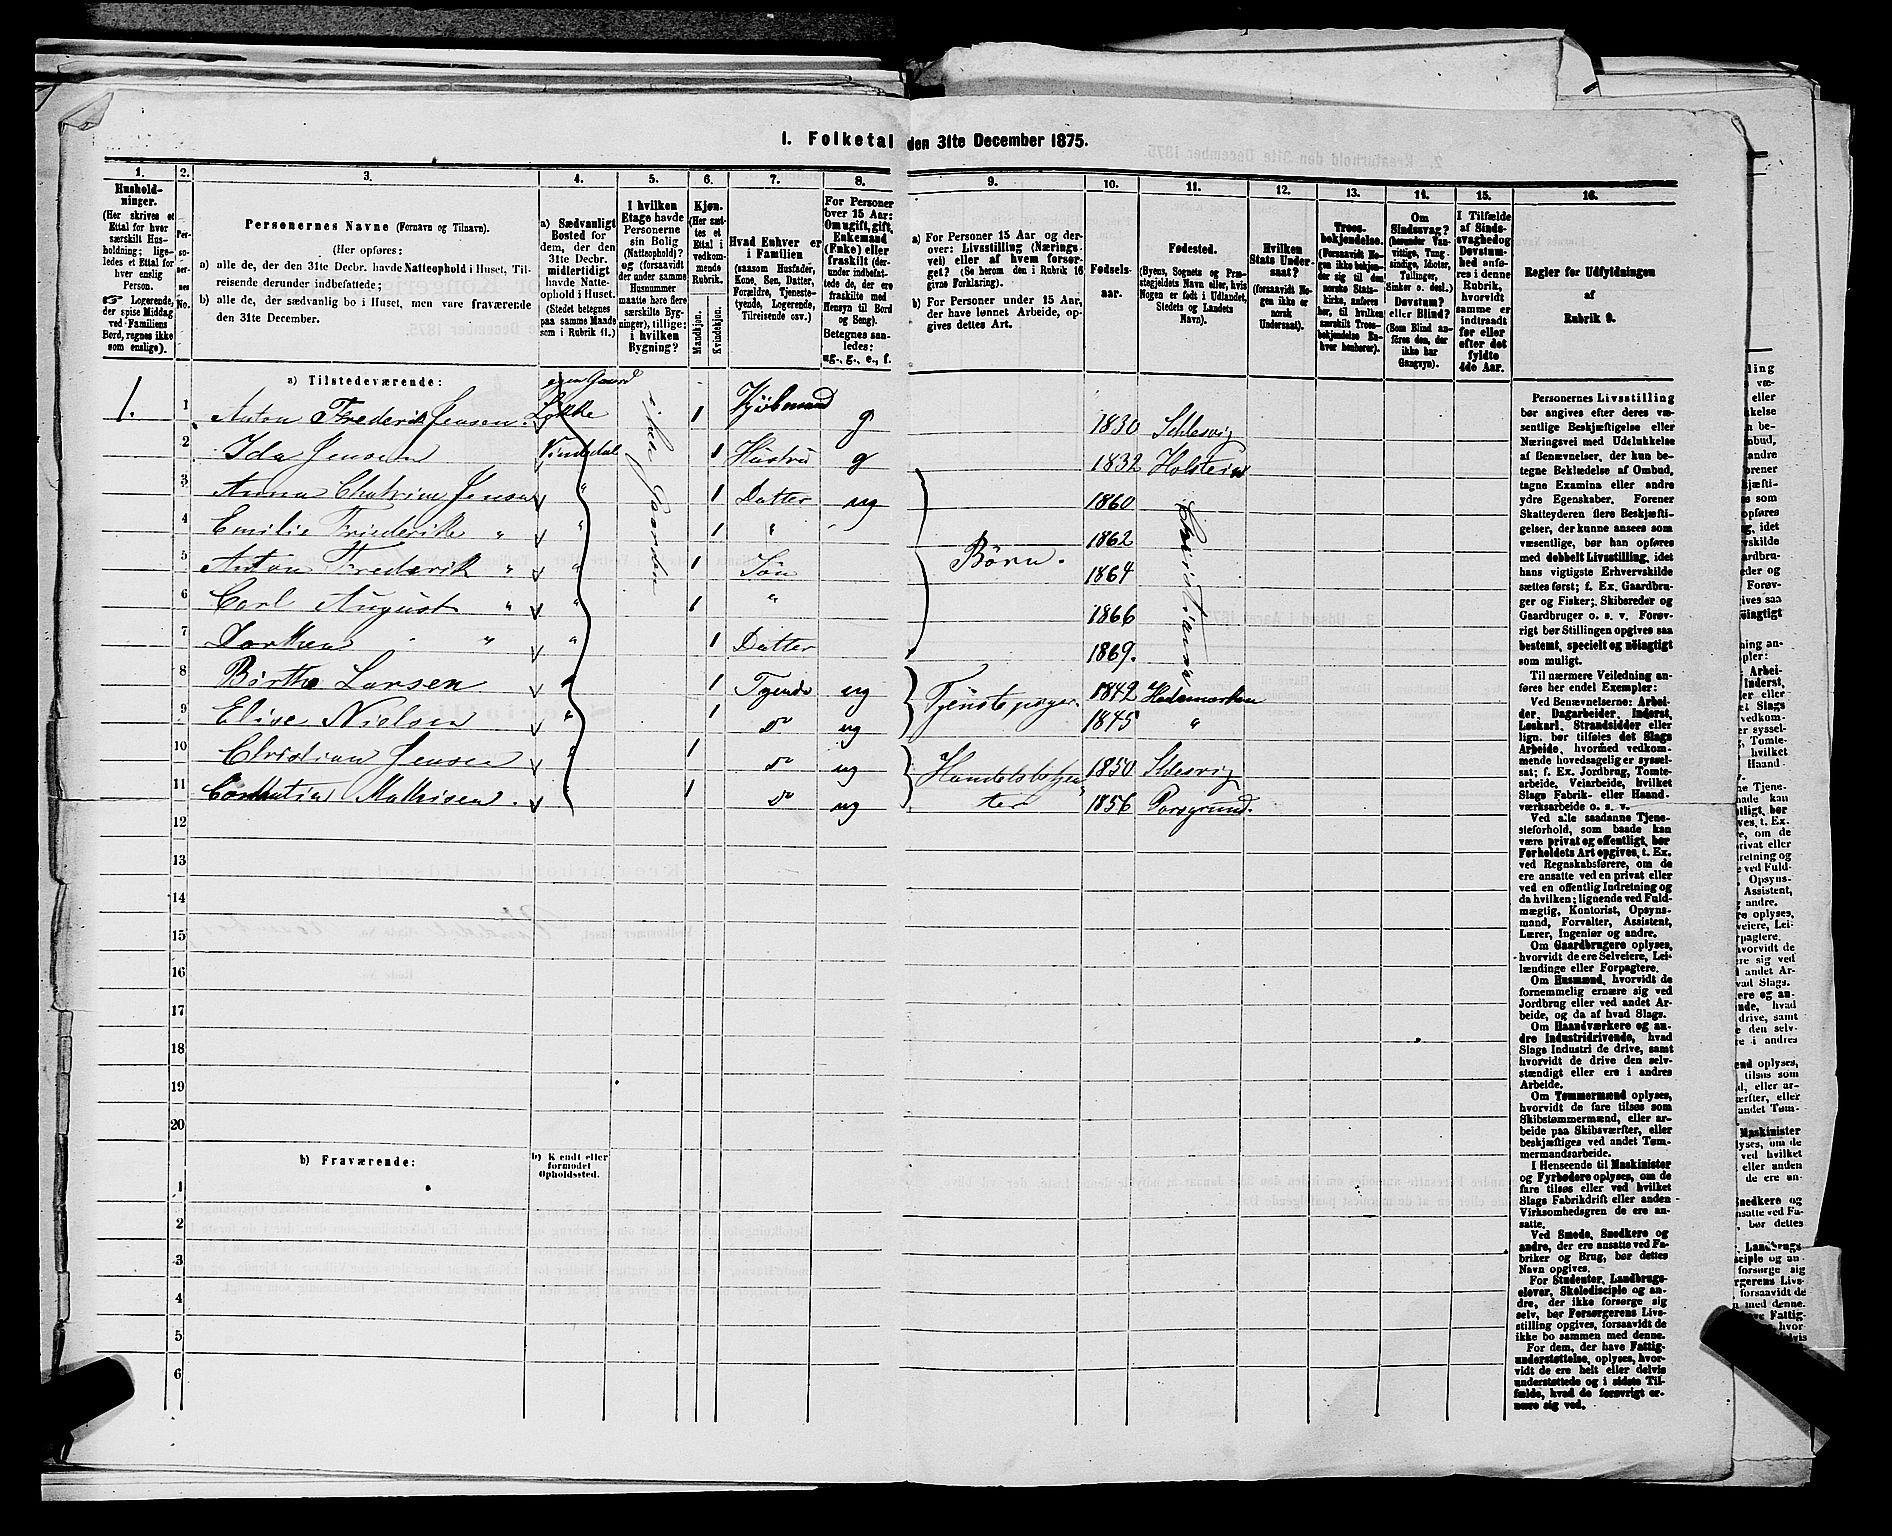 I. Folketal den 31te December 1875.
1. 2. 3. 4. 5. 6. 7. 8. 9. 10. 11. 12. 13. 14. 15. 16.
Hushold-
ninger.
(Her skrives et
Ettal for hver
særskilt Hus-
holdning; lige-
ledes et Ettal for
hver enslig
Person.
Logerende,
der spise Middag
ved Familiens
Bord, regnes ikke
som enslige).
Per-
so-
ner-
nes
No.
Personernes Navne (Fornavn og Tilnavn).
(Her opføres:
a) alle de, der den 31te Decbr. havde Natteophold i Huset, Til-
reisende derunder indbefattede;
b) alle de, der sædvanlig bo i Huset, men vare fraværende
den 31te December.
a) Sædvanligt
Bosted for
dem, der den
31te Decbr.
midlertidigt
havde Natte-
ophold i Huset.
(Stedet betegnes
paa samme Maade
som i Rubrik 11.)
I hvilken
Etage havde
Personerne
sin Bolig
(Natteophold)?
og (forsaavidt
der under samme
Husnummer
maatte høre flere
særskilte Byg-
ninger), tillige:
i hvilken
Bygning?
Kjøn.
(Her sæt-
tes et
Ettal i
vedkom-
mende
Rubrik.
Mandkjøn.
Kvindekjøn.
Hvad Enhver er
i Familien
(saasom Husfader,
Kone, Søn, Datter,
Forældre, Tjeneste-
tyende, Logerende,
Tilreisende osv.)
For Personer
over 15 Aar:
Om ugift, gift,
Enkemand
(Enke) eller
fraskilt (der-
under indbefat-
tede de, der ere
fraskilte med
Hensyn til Bord
og Seng).
Betegnes saa-
ledes:
ug., g., e., f.
a) For Personer 15 Aar og der-
over: Livsstilling (Nærings-
vei) eller af hvem forsør-
get? (Se herom den i Rubrik 16
givne Forklaring).
b) For Personer under 15 Aar,
der have lønnet Arbeide, op-
gives dettes Art.
Fødsels-
aar.
Fødested.
(Byens, Sognets og Præ-
stegjeldets Navn eller, hvis
Nogen er født i Udlandet,
Stedets og Landets
Navn).
Hvilken
Stats Under-
saat?
(forsaavidt No-
gen ikke er
norsk
Undersaat).
Troes-
bekjendelse.
(Forsaavidt No-
gen ikke bekjen-
der sig til den
norske Stats-
kirke, anføres
her, til hvilken
særskilt Troes-
bekjendelse En-
hver henhører).
Om
Sindssvag?
(herunder Van-
vittige, Tung-
sindige, Idioter,
Tullinger,
Sinker o. desl.)
Døvstum?
eller Blind?
(Som Blind an-
føres den, der
ikke har
Gangsyn).
I Tilfælde
af Sinds-
svaghed og
Døvstum-
hed anfø-
res i denne
Rubrik,
hvorvidt
samme er
indtraadt
før eller
efter det
fyldte
4de Aar.
Regler for Udfyldningen
af
Rubrik 9.
a) Tilstedeværende:
egen Gaard
1. 1 Anton Frederik Jensen. Løkke 1 Kjøbmand g 1830 Schlesvig
2 Ida Jensen Vinddal 1 Hustru g 1832 Holstein
3 Anna Chatrine Jensen " 1 Datter ug 1860
4 Emilie Friederike " " 1 " 1862
5 Anton Frederik " " 1 Søn Børn. 1864
6 Carl August " " 1 " 1866
7 Dorthea " " 1 Datter 1869.
8 Børthe Larsen " 1 Tyende ug Tjenstepiger 1842 Hedemarken
9 Elise Nielsen " 1 do ug 1845 "
10 Christian Jensen " 1 do ug Handelsbetjen- 1850 Schlesvig
11 Mathisen. 1 do ug ter 1856 Porsgrund.
12
13
14
15
16
17
18
19
20
b) Fraværende:
b) Kjendt eller
formodet
Opholdssted.
1
2
3
4
5
6
Personernes Livsstilling
bør angives efter deres væ-
sentlige Beskjæftigelse eller
Næringsvei med Udelukkelse
af Benævnelser, der kun be-
tegne Beklædelse af Ombud,
tagne Examina eller andre
ydre Egenskaber. Forener
Skatteyderen flere Beskjæfti-
gelser, der kunne ansees som
væsentlige, bør han opføres
med dobbelt Livsstilling, idet
hans vigtigste Erhvervskilde
sættes først; f. Ex. Gaardbru-
ger og Fisker; Skibsreder og
Gaardbruger o. s. v. Forøv-
rigt bør Stillingen opgives saa
bestemt, specielt og nøiagtigt
som muligt.
Til nærmere Veiledning an-
føres her endel Exempler:
Ved Benævnelserne: Arbei-
der, Dagarbeider, Inderst,
Løskarl, Strandsidder eller
lign. bør tilføies det Slags
Arbeide, hvormed vedkom-
mende hovedsagelig er syssel-
sat; f. Ex. Jordbrug, Tomte-
arbeide, Veiarbeide, hvilket
Slags Fabrik- eller Haand-
værksarbeide o. s. v.
Ved alle saadanne Tjene-
steforhold, som baade kan
være privat og offentligt, bør
Forholdets Art opgives, t. Ex.
ved Regnskabsførere, om de
ere ansatte ved en privat eller
ved en offentlig Indretning og
da hvilken; lignende ved Fuld-
mægtig, Kontorist, Opsyns-
mand, Forvalter, Assistent,
Lærer, Ingeniør og andre.
Om Gaardbrugere oplyses,
hvorvidt de ere Selveiere, Lei-
lændinge eller Forpagtere.
Om Husmænd, hvorvidt de
fornemmelig ernære sig ved
Jordbrug eller ved andet Ar-
beide, og da af hvad Slags.
Om Haandværkere og an-
dre Industridrivende, hvad
Slags Industri de drive, samt
hvorvidt de drive den selv-
stændigt eller ere i andres
Arbeide.
Om Tømmermænd oplyses,
hvorvidt de fare tilsøs som
Skibstømmermænd, eller ar-
beide paa Skibsværfter, eller
beskjæftiges ved andet Tøm-
mermandsarbeide.
I Henseende til Maskinister
og Fyrbødere oplyses, om de
fare tilsøs eller ved hvilket
Slags Fabrikdrift eller anden
Virksomhedsgren de ere an-
satte.
Ved Smede, Snedkere og
andre, der ere ansatte ved Fa-
briker og Brug, bør dettes
Navn opgives.
For Studenter, Landbrugs-
elever, Skoledisciple og an-
dre, der ikke forsørge sig
selv, bør Forsørgerens Livs-
stilling opgives, forsaavidt de
ikke bo sammen med denne.
For dem, der have Fattig-
understøttelse, oplyses, hvor-
vidt de ere helt eller delvis
understøttede og i sidste Til-
fælde, hvad de forøvrigt er-
nære sig ved.